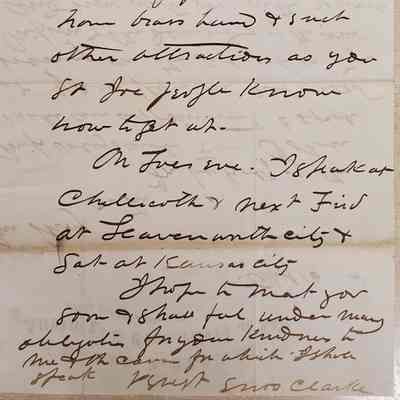 horn brass band & such
other attractions as you
St Joe people know
how to get at.
On Tues eve. I speak at
Chillicoth & next Frid
at Leavenworth city &
Sat at Kansas city
I hope to meet you
soon & shall feel under many
obligatis for your kindness to
me & the cause for which I shall
speak Enos Clarke